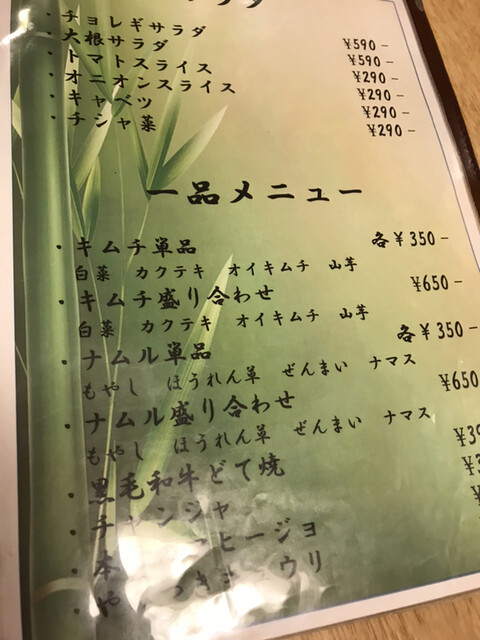 ・チョレギサラダ ¥590-
・大根サラダ ¥590-
・トマトスライス ¥290-
・オニオンスライス ¥290-
・キャベツ ¥290-
・チシャ菜 ¥290-
一品メニュー
・キムチ単品 各¥350-
白菜 カクテキ オイキムチ 山芋
・キムチ盛り合わせ ¥650-
白菜 カクテキ オイキムチ 山芋
・ナムル単品 各¥350-
もやし ほうれん草 ぜんまい ナマス
・ナムル盛り合わせ ¥650
もやし ほうれん草 ぜんまい ナマス
・黒毛和牛どて焼
・チャンジャ